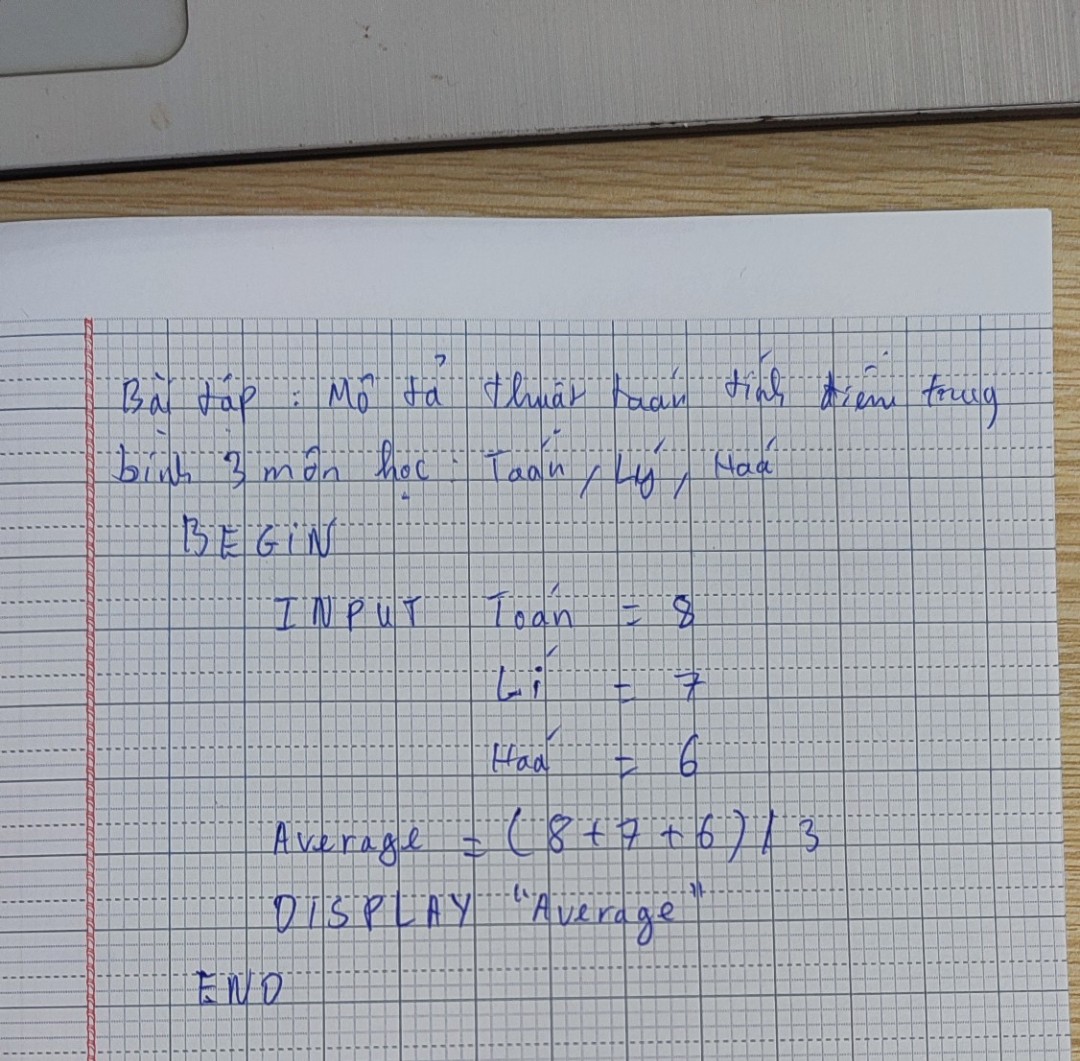 Bài tập : Mô tả thuật toán tính điểm trung
bình 3 môn học : Toán, Lý, Hoá
BEGIN
INPUT Toán = 8
Lí = 7
Hoá = 6
Average = (8+7+6) / 3
DISPLAY "Average"
END